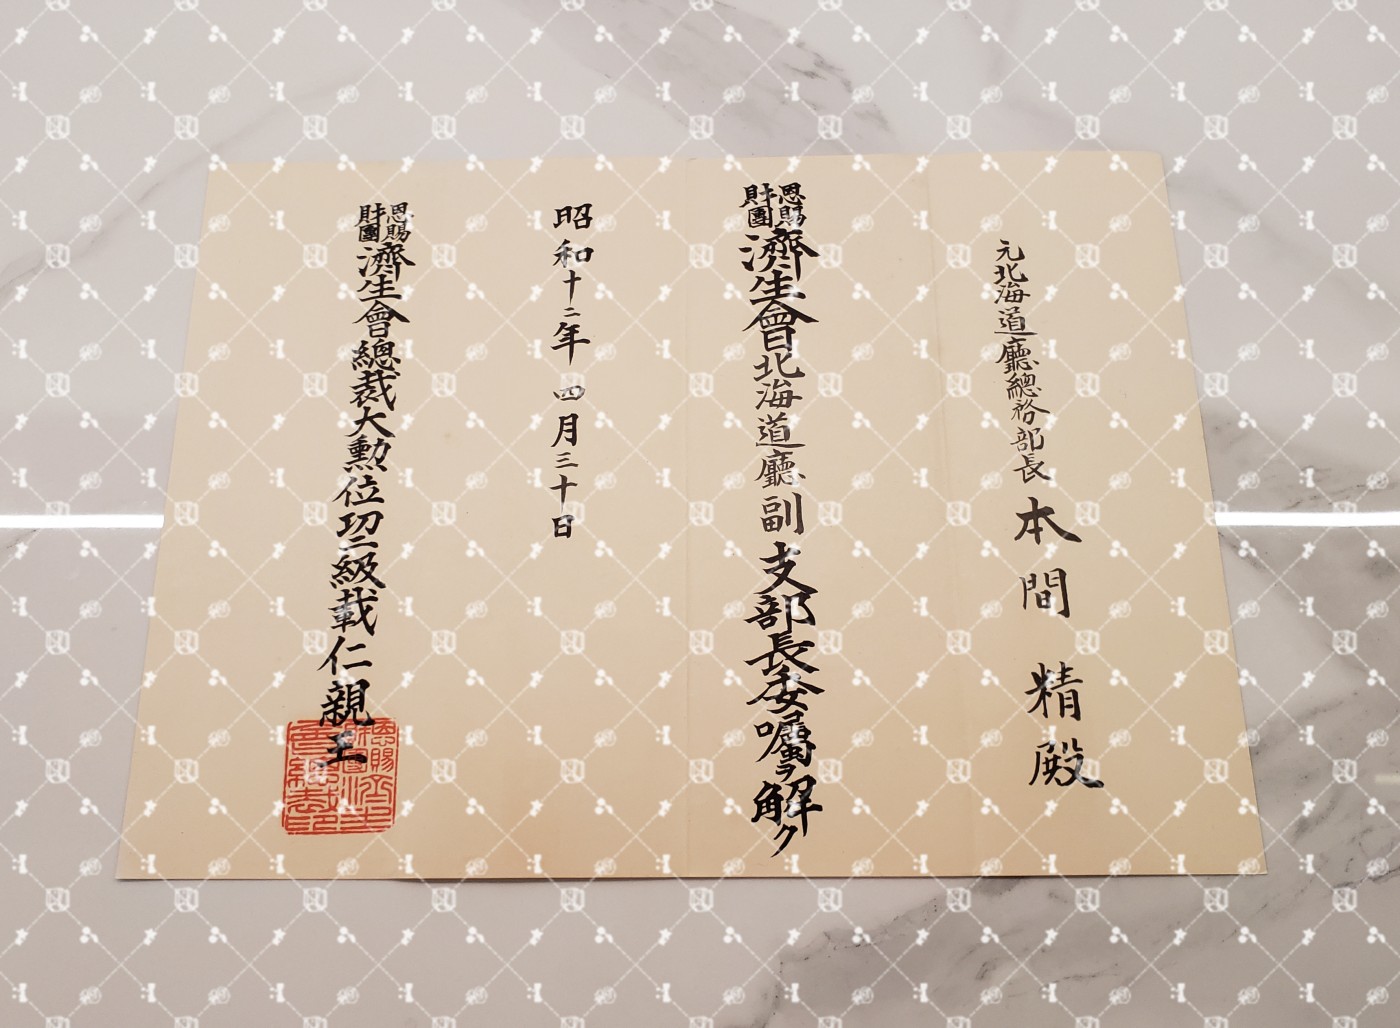 元北海道廳總務部長 本間 精殿
恩賜財團濟生會北海道廳副支部長委囑ヲ解ク
昭和十二年四月三十日
恩賜財團濟生會總裁大勲位功二級載仁親王